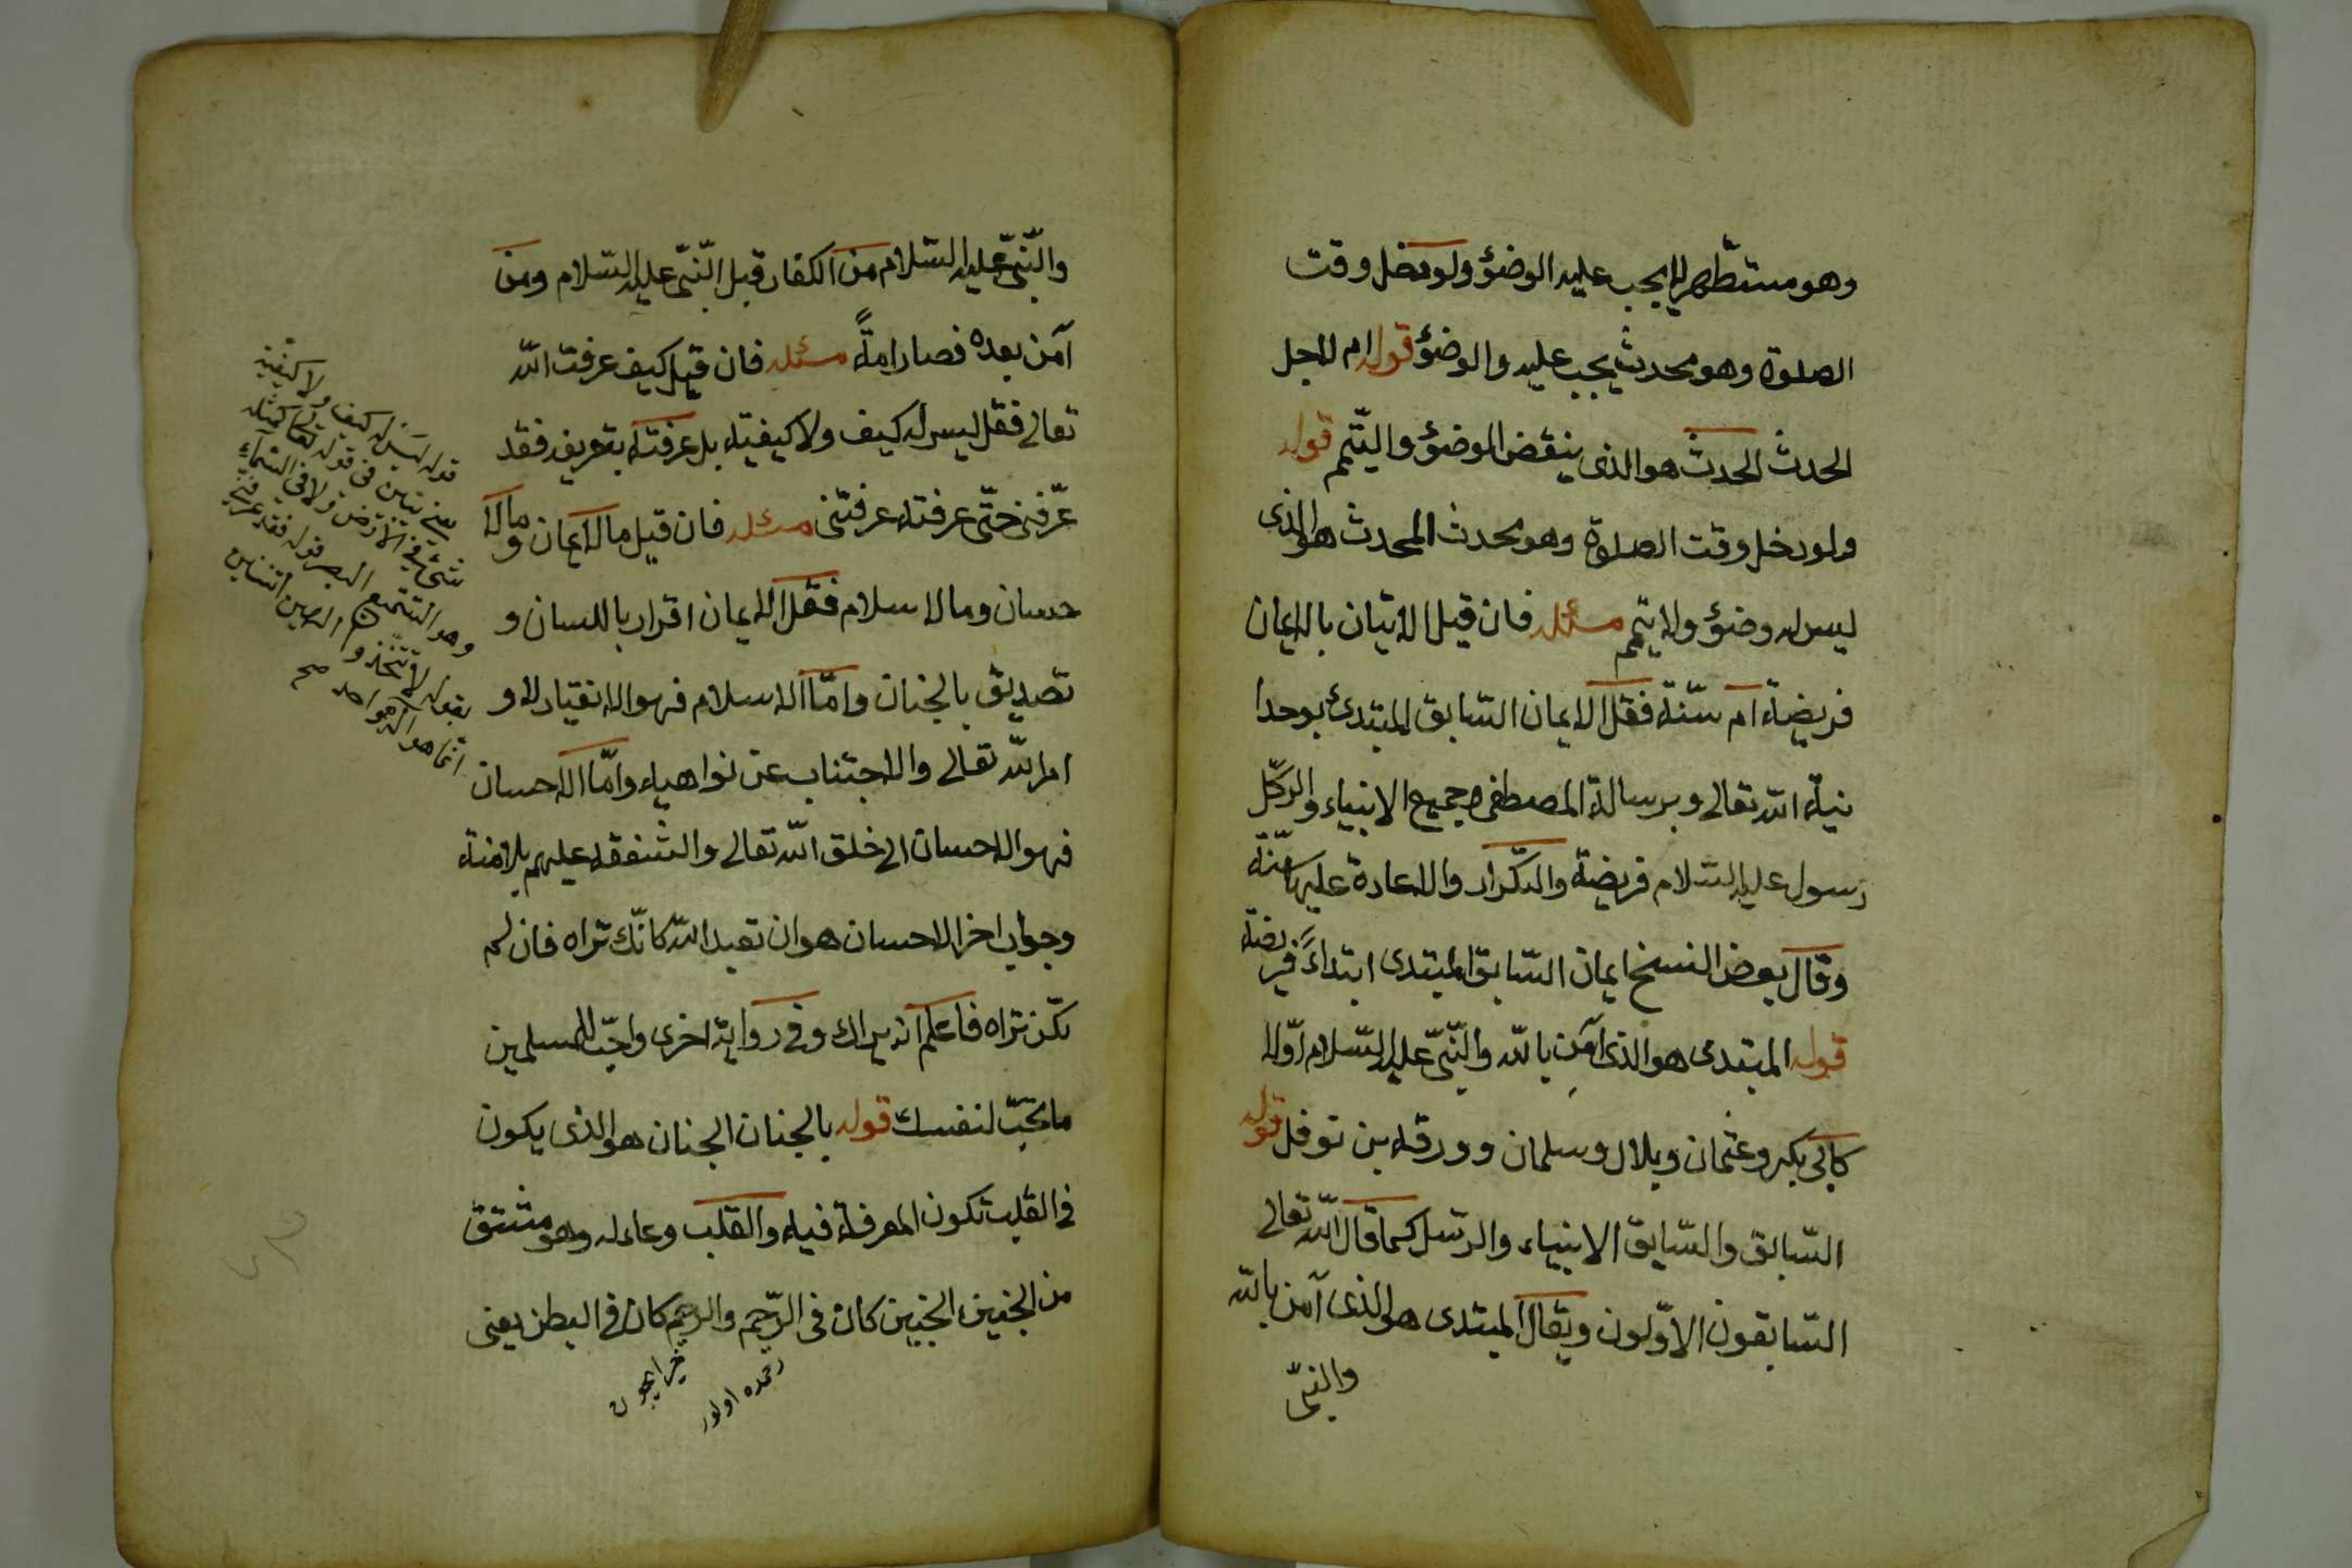 وهو مستطهر لا يجب عليه الوضؤ ولو دخل وقت
الصلوة وهو محدث يجب عليه والوضؤ قوله ام لاجل
الحدث الحدث هو الذى ينقض الوضؤ والتيمم قوله
ولو دخل وقت الصلوة وهو محدث المحدث هو الذى
ليس له وضؤ ولا تيمم مسئله فان قيل الاتيان بالايمان
فريضة ام سنّة فقل الايمان السّابق المبتدئ بوحدا
نية اللّه تعالى وبرسالة المصطفى وجميع الانبياء والرسل
رسول عليه السّلام فريضة والتكرار والاعادة عليها سنّة
وقال بعض النسخ ايمان السّابق المبتدى ابتداءً فريضة
قوله المبتدى هو الذى آمن باللّه والنّبىّ عليه السّلام اوّلا
كابى بكر وعثمان وبلال وسلمان وورقه بن نوفل قوله
السّابق والسّابق الانبياء والرّسل كما قال اللّه تعالى
السّابقون الاوّلون ويقال المبتدى هو الذى آمن باللّه
والنبىّ
والنّبىّ عليه السّلام من الكفار قبل النّبىّ عليه السّلام ومن
آمن بعده فصار امةً مسئله فان قيل كيف عرفت اللّه
تعالى فقل ليس له كيف ولا كيفية بل عرفته بتعريفه فقد
عرّفنى حتّى عرفته عرفتنى مسئله فان قيل ما الايمان وما الا
حسان وما الاسلام فقل الايمان اقرار باللسان و
تصديق بالجنان وامّا الاسلام فهو الانقياد لاو
امر اللّه تعالى والاجتناب عن نواهيه وامّا الاحسان
فهو الاحسان الى خلق اللّه تعالى والشفقة عليهم بلا منة
وجواب اخر الاحسان هو ان تعبد اللّه كانّك تراه فان لم
تكن تراه فاعلم انه يراك وفى رواية اخرى واحبّ للمسلمين
ما تحبّ لنفسك قوله بالجنان الجنان هو الذى يكون
فى القلب تكون المعرفة فيه والقلب وعاء له وهو مشتق
من الجنين الجنين كان فى الرّحم والرحم كان فى البطن يعنى
قوله ليس له كيف ولا كيفية
شئ فى الارض ولا فى السّماء
وهو السّميع البصير قوله فقد عرفنى
بقوله لا تتخذوا الهين اثنين
انما هو اله واحد صح
رحمده اولور